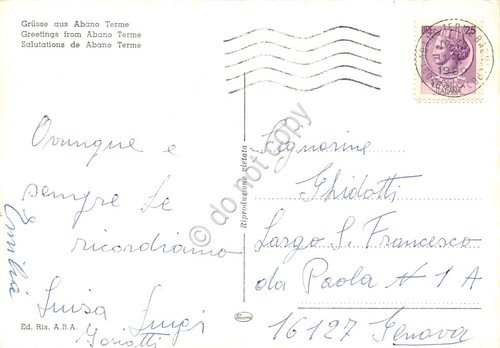 Grüsse aus Abano Terme
Greetings from Abano Terme
Salutations de Abano Terme
25
Ovunque e
sempre Le
ricordiamo
Luisa Luigi
Emilia
Ed. Ris. A.B.A.
Riproduzione vietata
do not copy
Signorine
Ghidotti
Largo S. Francesco
da Paola N 1 A
16127 Genova